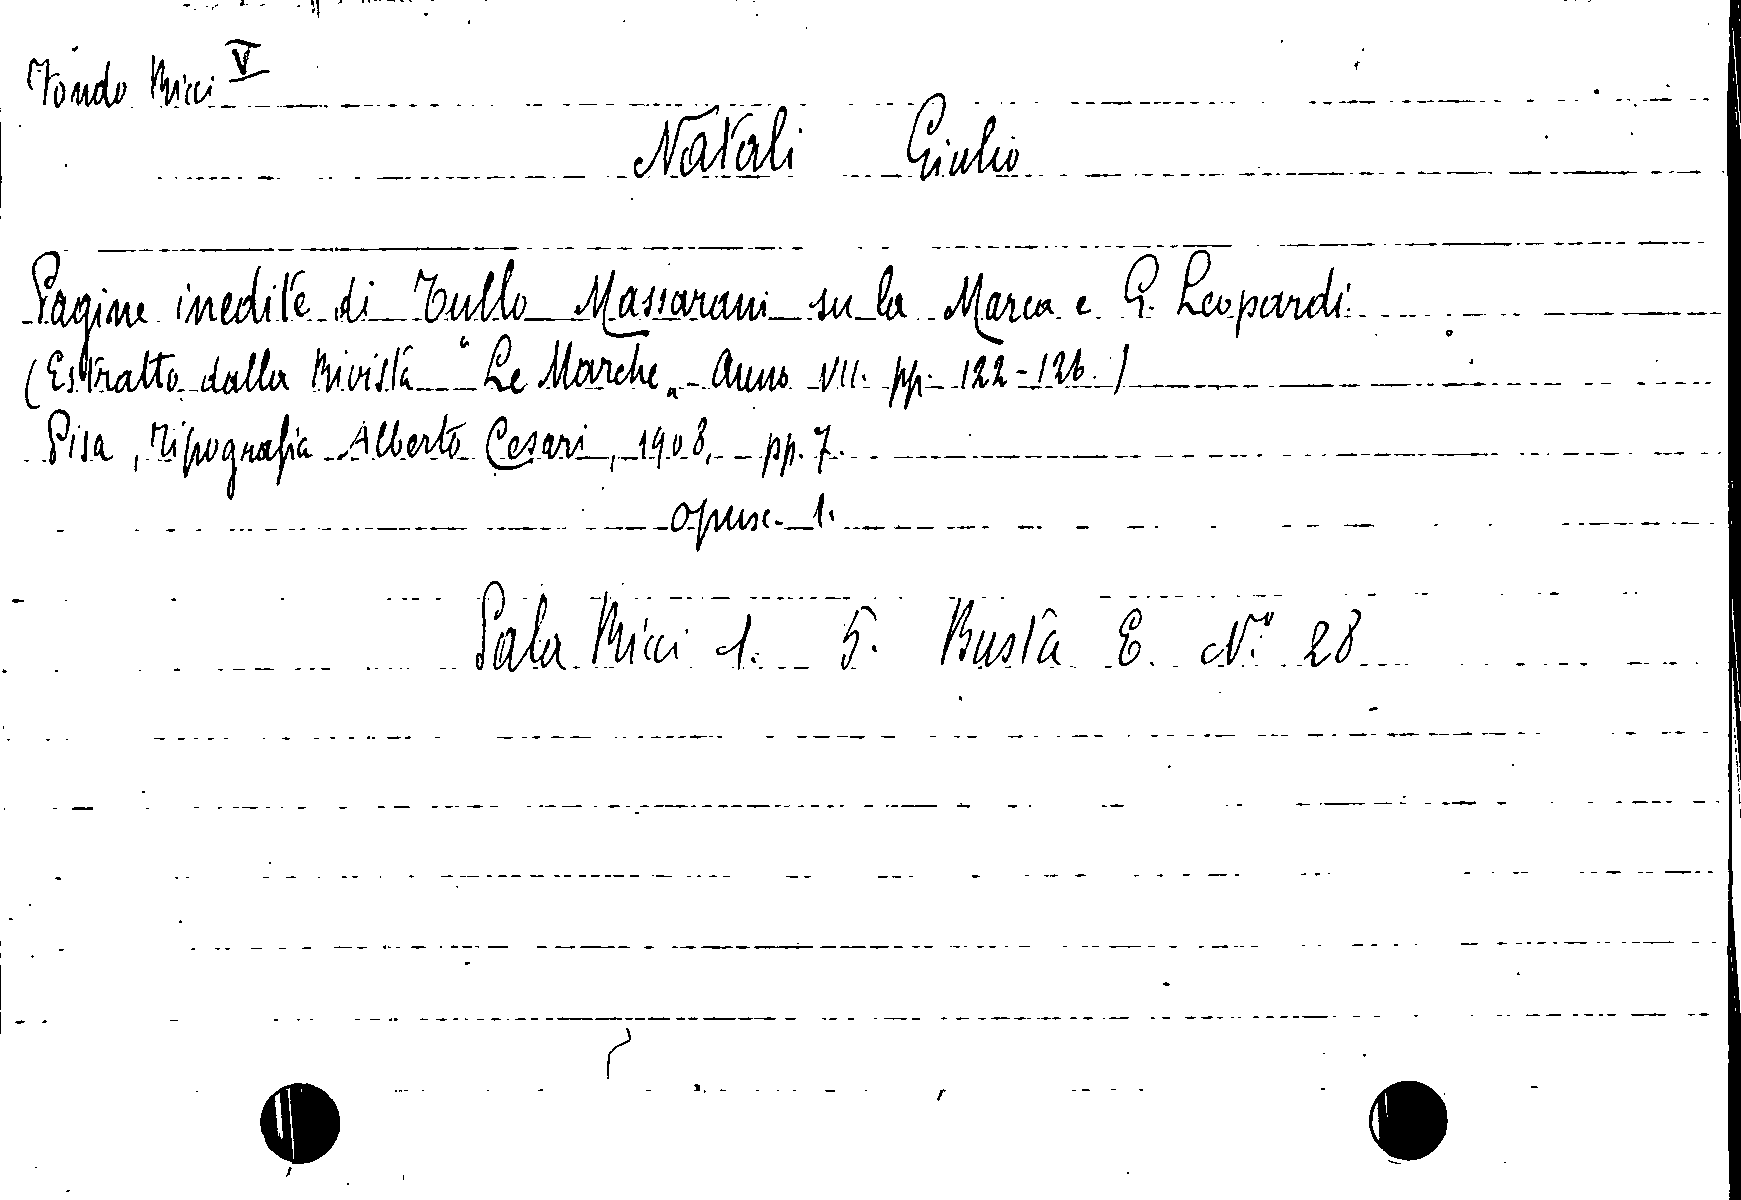 Fondo Ricci V
Natali Giulio
Pagine inedite di Tullo Massarani su la Marca e G. Leopardi.
(Estratto dalla Rivista "Le Marche„ Anno VII. pp. 122-126.)
Pisa, Tipografia Alberto Cesari, 1908, pp. 7.
opusc. 1.
Sala Ricci 1. 5. Busta E. N.° 28